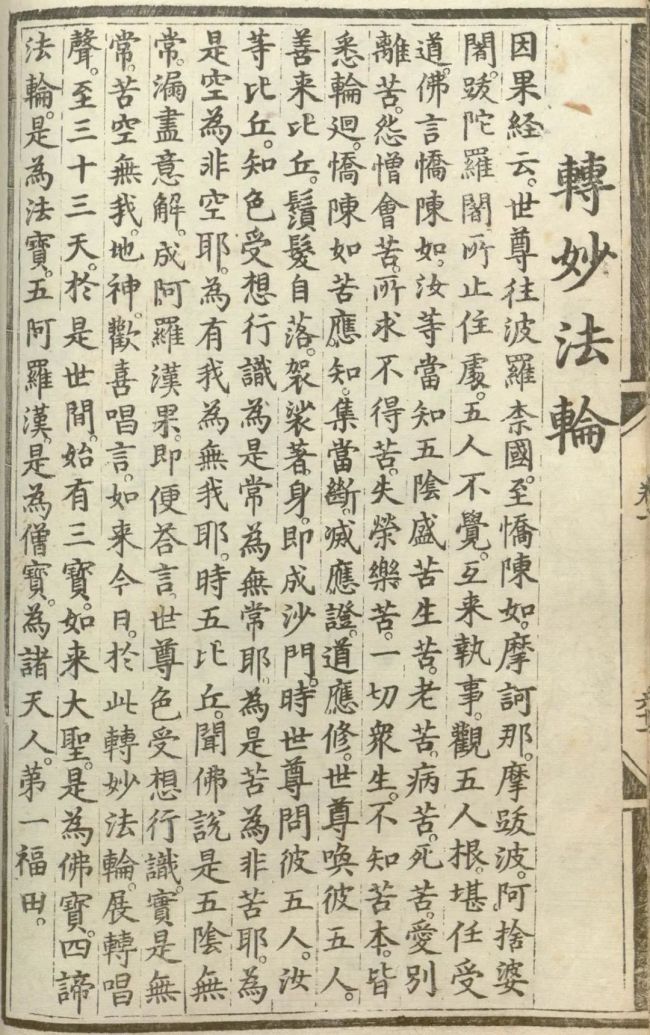 轉妙法輪
因果経云。世尊往波羅柰國。至憍陳如。摩訶那。摩跋波。阿捨婆
闍。跋陀羅闍。所止住處。五人不覺。互来執事。觀五人根。堪任受
道。佛言憍陳如。汝等當知五陰盛苦生苦。老苦。病苦。死苦。愛別
離苦。怨憎會苦。所求不得苦。失榮樂苦。一切衆生。不知苦本。皆
悉輪迴。憍陳如苦應。知。集當斷。滅應證。道應修。世尊喚彼五人。
善来比丘。鬚髮自落。袈裟著身。即成沙門。時世尊問彼五人。汝
等比丘。知色受想行識。為是常為無常耶。為是苦為非苦耶。為
是空為非空耶。為有我為無我耶。時五比丘。聞佛說是五陰無
常。漏盡意解。成阿羅漢果。即便荅言。世尊色受想行識。實是無
常。苦空無我。地神。歡喜唱言。如来今日。於此轉妙法輪。展轉唱
聲。至三十三天。於是世間。始有三寶。如来大聖。是為佛寶。四諦
法輪。是為法寶。五阿羅漢。是為僧寶。為諸天人。第一福田。